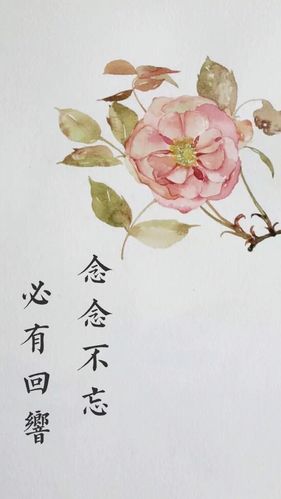 念念不忘
必有回響